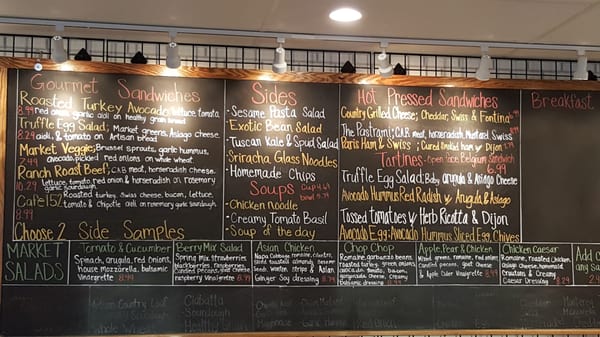 Gourmet Sandwiches
Roasted Turkey Avocado; lettuce, tomato
8.99 red onions, garlic aioli on healthy grain bread
Truffle Egg Salad; Market greens, Asiago cheese
8.29 aioli, & tomato on Artisan bread.
Market Veggie; Brussel sprouts, garlic hummus,
7.49 avocado, pickled red onions on whole wheat.
Ranch Roast Beef; CAB meat, horseradish cheese
10.29 lettuce, tomato, red onion & horseradish on rosemary
garlic sourdough.
Cafe 152; Roasted turkey, Swiss cheese, bacon, lettuce,
8.99 tomato & chipotle aioli on rosemary garlic sourdough.
Choose 2 Side Samples
Sides
- Sesame Pasta Salad
- Exotic Bean Salad
- Tuscan Kale & Spud Salad
- Sriracha Glass Noodles
- Homemade Chips
Soups Cup 4.69
bowl
- Chicken noodle
- Creamy Tomato Basil
- Soup of the day
Hot Pressed Sandwiches
Country Grilled Cheese; Cheddar, Swiss & Fontina
The Pastrami; CAB meat, horseradish, Mustard, Swiss
Paris Ham & Swiss; Cured Smoked ham w/ Dijon
Tartines - Open face Belgium Sandwich
6.99
Truffle Egg Salad; Baby arugula & Asiago Cheese
Avocado Hummus Red Radish w/ Arugula & Asiago
Tossed Tomatoes w/ Herb Ricotta & Dijon
Avocado Egg; Avocado Hummus Sliced Egg, Chives
Breakfast
MARKET
SALADS
Tomato & Cucumber
Spinach, arugula, red onions,
house mozzarella, balsamic
Vinaigrette 8.99
Berry Mix Salad
Spring mix, strawberries,
blueberries, raspberries,
Candied pecans, goat cheese
raspberry Vinaigrette 8.99
Asian Chicken
Napa Cabbage, romaine, cilantro,
shredded almonds, sesame
Seeds, wonton strips & Asian
Ginger Soy dressing
Chop Chop
Romaine, garbanzo beans,
roasted turkey, green onions,
avocado, tomato, bacon,
Creamy balsamic dressing 8.99
Apple, Pear & Chicken
Mixed greens, romaine, red onions
candied pecans, goat cheese
& Apple Cider Vinaigrette 8.99
Chicken Caesar
Romaine, roasted chicken,
Asiago cheese, homemade
Croutons & Creamy
Caesar Dressing 8.29
Add
any sa
Ciabatta
Sourdough